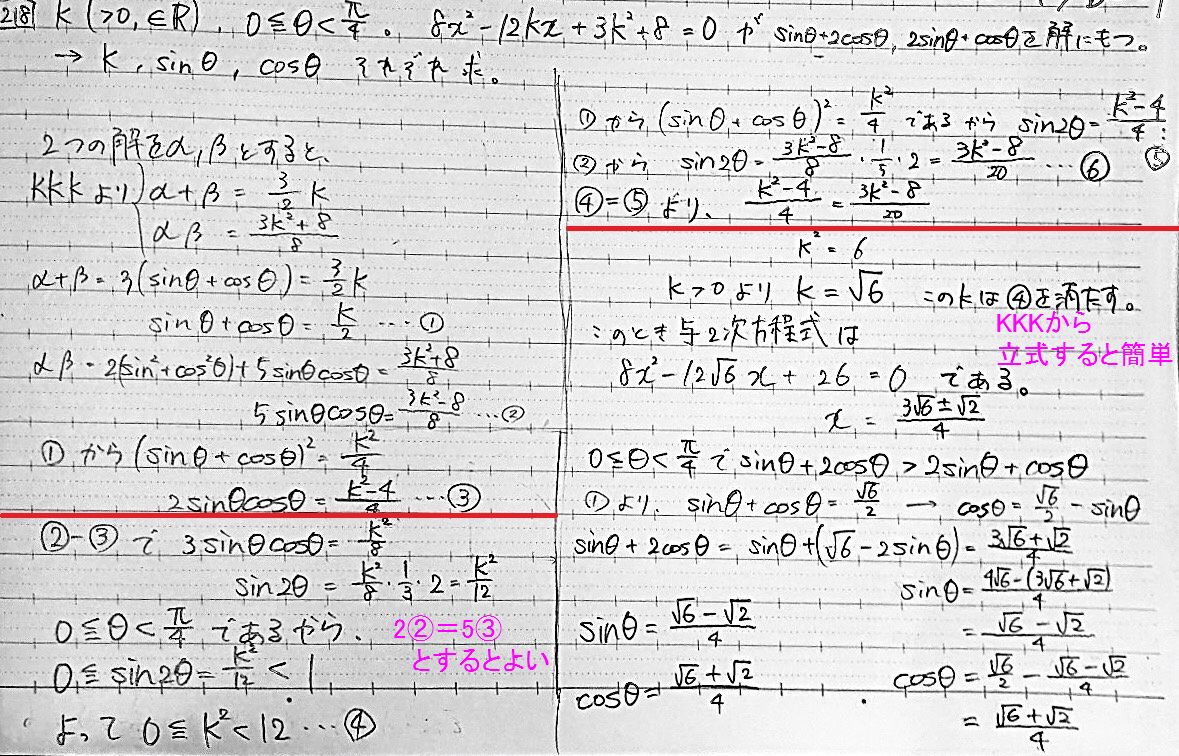 218 k (>0, ∈ℝ), 0≦θ<π/4。 8x²-12kx+3k²+8=0 が sinθ+2cosθ, 2sinθ+cosθを解にもつ。
→ k, sinθ, cosθ それぞれ求。
2つの解をα, βとすると、
KKKより α+β = 3/2 k
αβ = (3k²+8)/8
α+β = 3(sinθ+cosθ) = 3/2 k
sinθ+cosθ = k/2 … ①
αβ = 2(sin²+cos²θ)+5sinθcosθ = (3k²+8)/8
5sinθcosθ = (3k²-8)/8 … ②
① から (sinθ+cosθ)² = k²/4
2sinθcosθ = (k²-4)/4 … ③
②-③ で 3sinθcosθ = k²/8
sin2θ = k²/8・1/3・2 = k²/12
0≦θ<π/4 であるから、
2②=5③
とするとよい
0≦sin2θ = k²/12 < 1
よって 0≦k²<12 … ④
① から (sinθ+cosθ)² = k²/4 であるから sin2θ = (k²-4)/4 … ⑤
② から sin2θ = (3k²-8)/8・1/5・2 = (3k²-8)/20 … ⑥
④=⑤ より、 (k²-4)/4 = (3k²-8)/20
k² = 6
k>0 より k=√6 このkは④を満たす。
KKKから
立式すると簡単
このとき与2次方程式は
8x²-12√6x+26=0 である。
x = (3√6±√2)/4
0≦θ<π/4 で sinθ+2cosθ > 2sinθ+cosθ
① より、 sinθ+cosθ = √6/2 → cosθ = √6/2 - sinθ
sinθ+2cosθ = sinθ+(√6-2sinθ) = (3√6+√2)/4
sinθ = (4√6-(3√6+√2))/4
= (√6-√2)/4
sinθ = (√6-√2)/4
cosθ = √6/2 - (√6-√2)/4
= (√6+√2)/4
cosθ = (√6+√2)/4